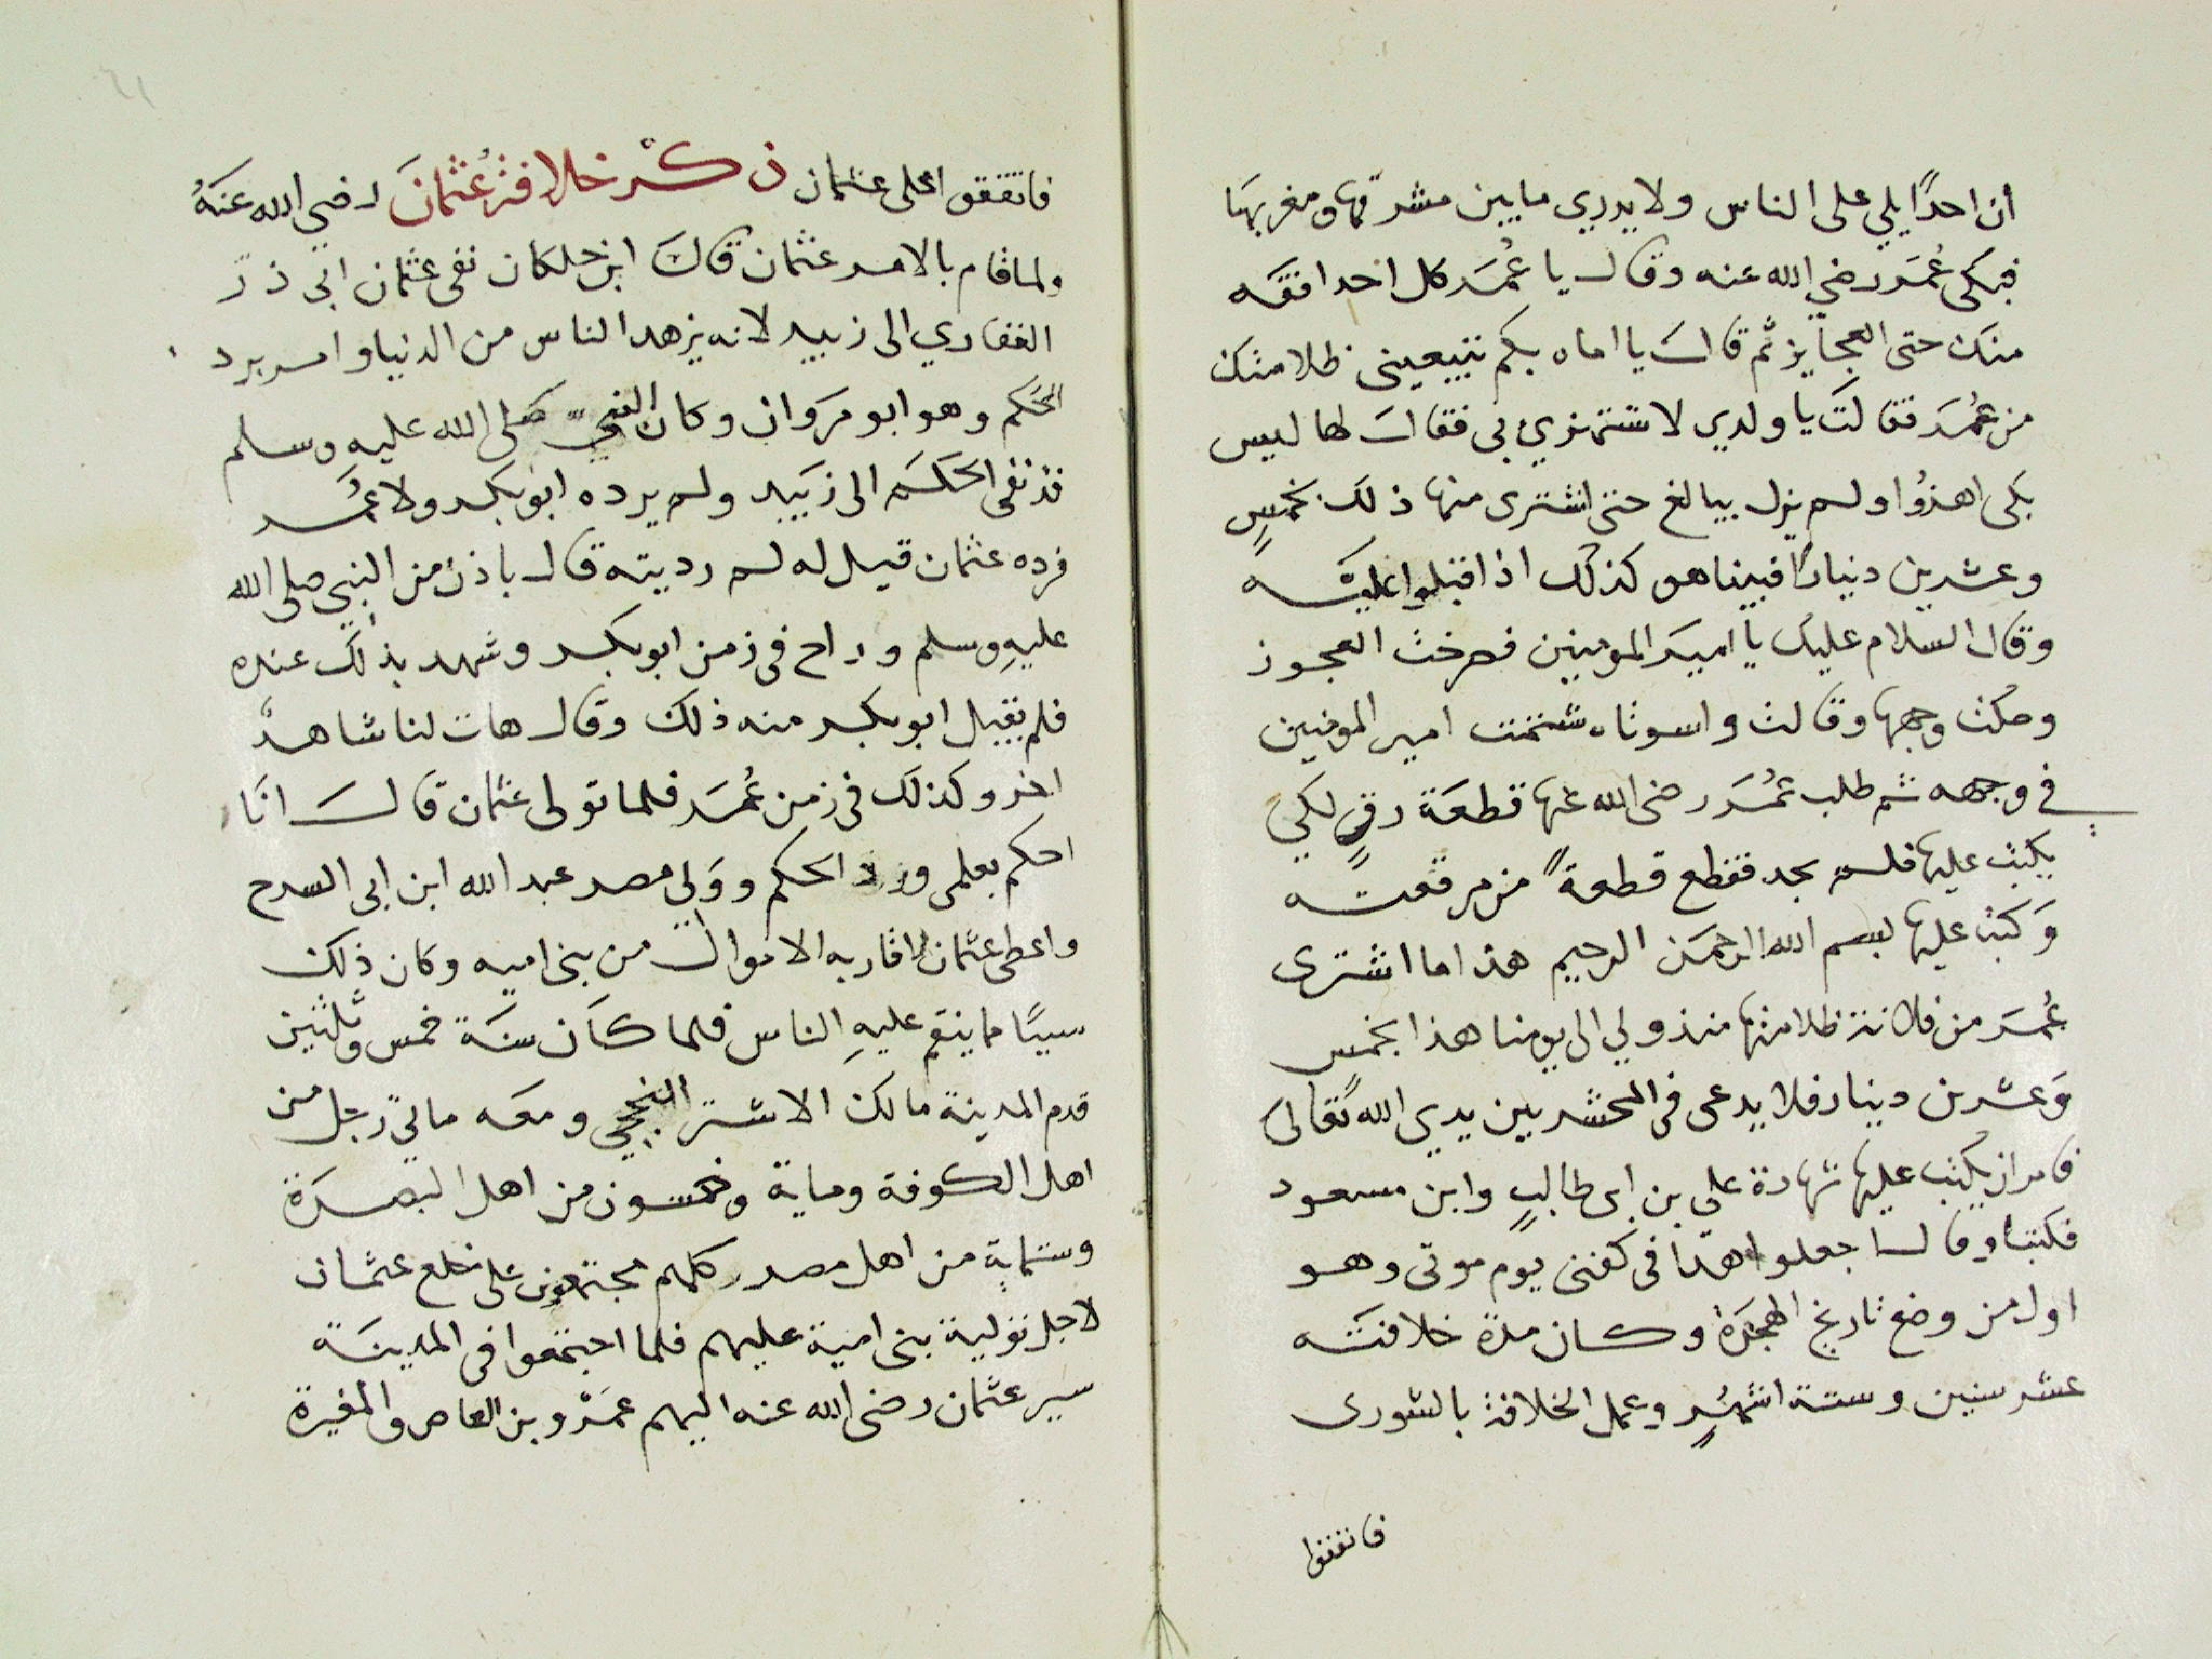 أن احدًا يلي على الناس ولا يدري ما بين مشرقها ومغربها
فبكى عُمَر رضي الله عنه وقال يا عُمَر كل احد افقه
منك حتى العجايز ثم قال يا اماه بكم تبيعينى ظلامتك
من عُمَر فقالت يا ولدي لا تشتهزي بى فقال لها ليس
بكى اهزؤا ولم يزل يبالغ حتى اشترى منها ذلك بخمسٍ
وعشرين دينارًا فبينا هو كذلك اذا اقبلوا عليه
وقال السلام عليك يا امير المومنين فصرخت العجوز
وصكت وجهها وقالت واسوتاه شتمت امير المومنين
في وجهه ثم طلب عُمَر رضى الله عنها قطعة رقٍ لكي
يكتب عليها فلم يجد فقطع قطعةً من مرقعته
وَكتب عليها بسم الله الرحمن الرحيم هذا ما اشترى
عُمَر من فلانة ظلامتها منذ ولي الى يومنا هذا بخمسٍ
وَعشرين دينار فلا يدعى فى المحشر بين يدي الله تعالى
فامر ان يكتب عليها شهادة على بن ابى طالبٍ وابن مسعود
فكتبا وقال اجعلوا هذا فى كفنى يوم موتى وهو
اول من وضع تاريخ الهجرة وكان مدة خلافته
عشر سنين وستة اشهُرٍ وعمل الخلافة بالشورى
فاتفقوا
فاتفقوا على عثمان ذكْر خلافة عُثمانَ رضي الله عنهُ
ولما قام بالامر عثمان قال ابن خلكان نفى عثمان ابى ذر
الغفاري الى زبيد لانه يزهد الناس من الدنيا وامر برد
الحَكم وهو ابو مرَوان وكان النبي صلى الله عليه وسلم
قد نفى الحكم الى زبَيد ولم يرده ابو بكر ولا عُمَر
فرده عثمان قيل له لم رديته قال باذن من النبي صلى الله
عليهِ وسلم وراح فى زمن ابو بكر وشهد بذلك عنده
فلم يقبل ابو بكر منه ذلك وقال هات لنا شاهدٌ
اخر وكذلك فى زمن عُمَر فلما تولى عثمان قال انَا
احكم بعلمى ورد الحكم ووَلي مصر عبد الله ابن ابى السرح
واعطى عثمان اقاربه الاموال من بنى اميه وكان ذلك
سيبًا ما ينقم عليهِ الناس فلما كاَن سنَة خمس وثلثين
قدم المدينة مالك الاشتر النخعي ومعه ماتي رجل من
اهل الكوفة وماية وخمسون من اهل البصرَة
وستمايةٍ من اهل مصر كلهم مجتمعون على خلع عثمان
لاجل تولية بنى امية عليهم فلما اجتمعوا فى المدينَة
سير عثمان رضى الله عنه اليهم عمَرْو بن العاص والمغيرة